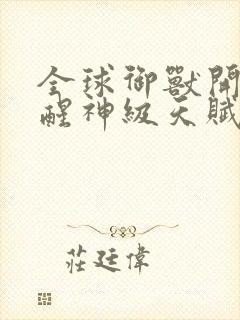 全球御獸開
醒神級天賦
莊廷偉